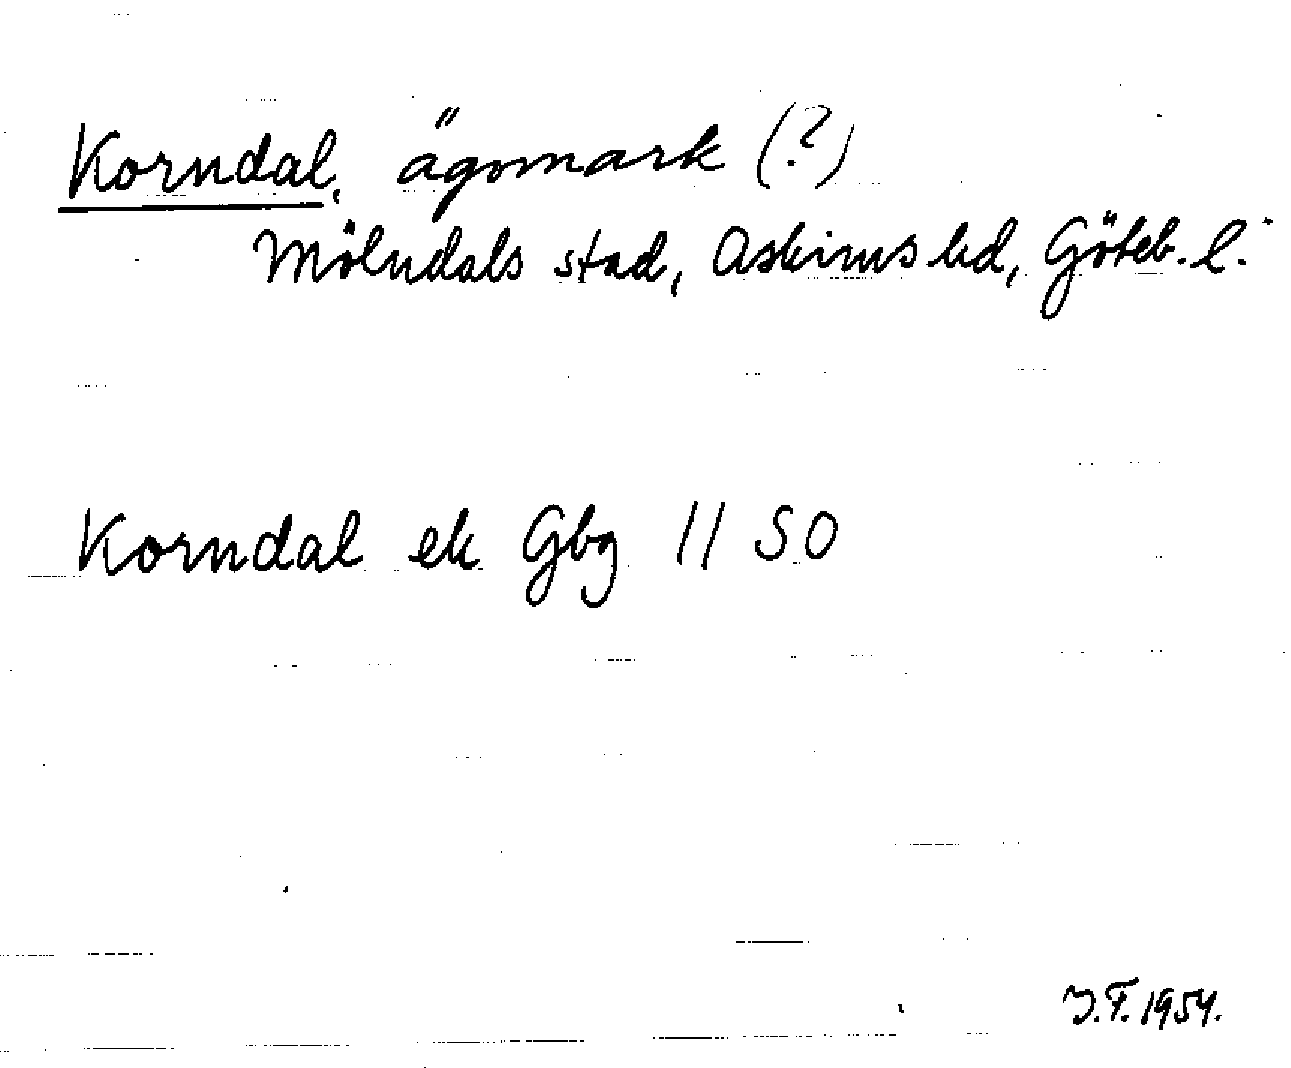 Korndal, ägomark (?)
Mölndals stad, Askims hd, Göteb. l.
Korndal ek Gbg 11 SO
J.F. 1954.